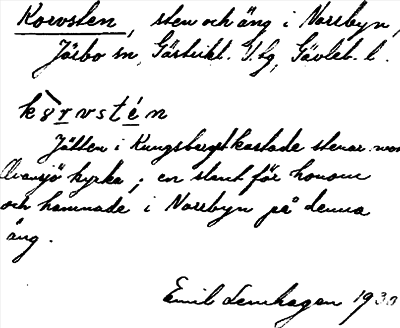 Korvsten, sten och äng i Norrbyn,
Järbo sn, Gästrikl. V. tg, Gävleb. l.
kòrvstén
Jätten i Kungsberget kastade stenar mot
Ovansjö kyrka; en slant för honom
och hamnade i Norrbyn på denna
äng.
Emil Lenhagen 1930